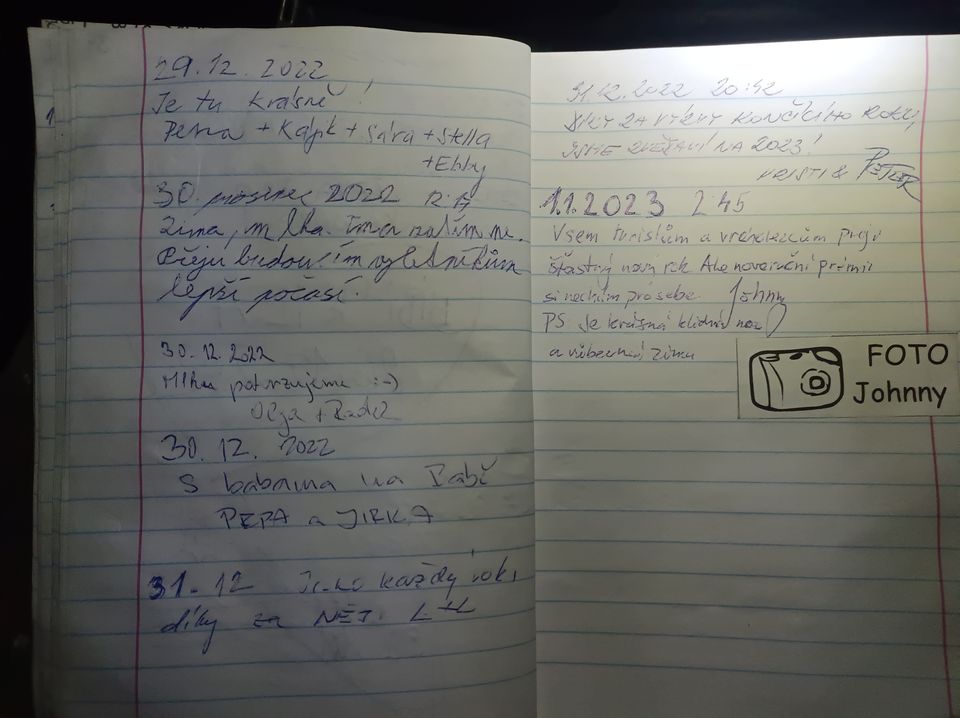 29.12.2022
Je tu krásně!
Petra + Kájík + Sára + Stella
+Ebby
30. prosinec 2022
Zima, mlha. Tma zatím ne.
Přeju budoucím výletníkům
lepší počasí.
30.12.2022
Mlhu potvrzujeme :-)
Olga + Radek
30. 12. 2022
S babama na Babě
PEPA a JIRKA
31. 12 Jako každý rok,
díky za NĚJ. L+L
31.12.2022 20:42
DÍKY ZA VÝZVY KONČÍCÍHO ROKU,
JSME ZVĚDAVÍ NA 2023!
KRISTI & PETER
1.1.2023 2 45
Všem turistům a vrcholezcům přeji
šťastný nový rok. Ale novoroční prémii
si nechám pro sebe. Johnny
PS je krásná klidná noc
a vůbec není zima
FOTO
Johnny